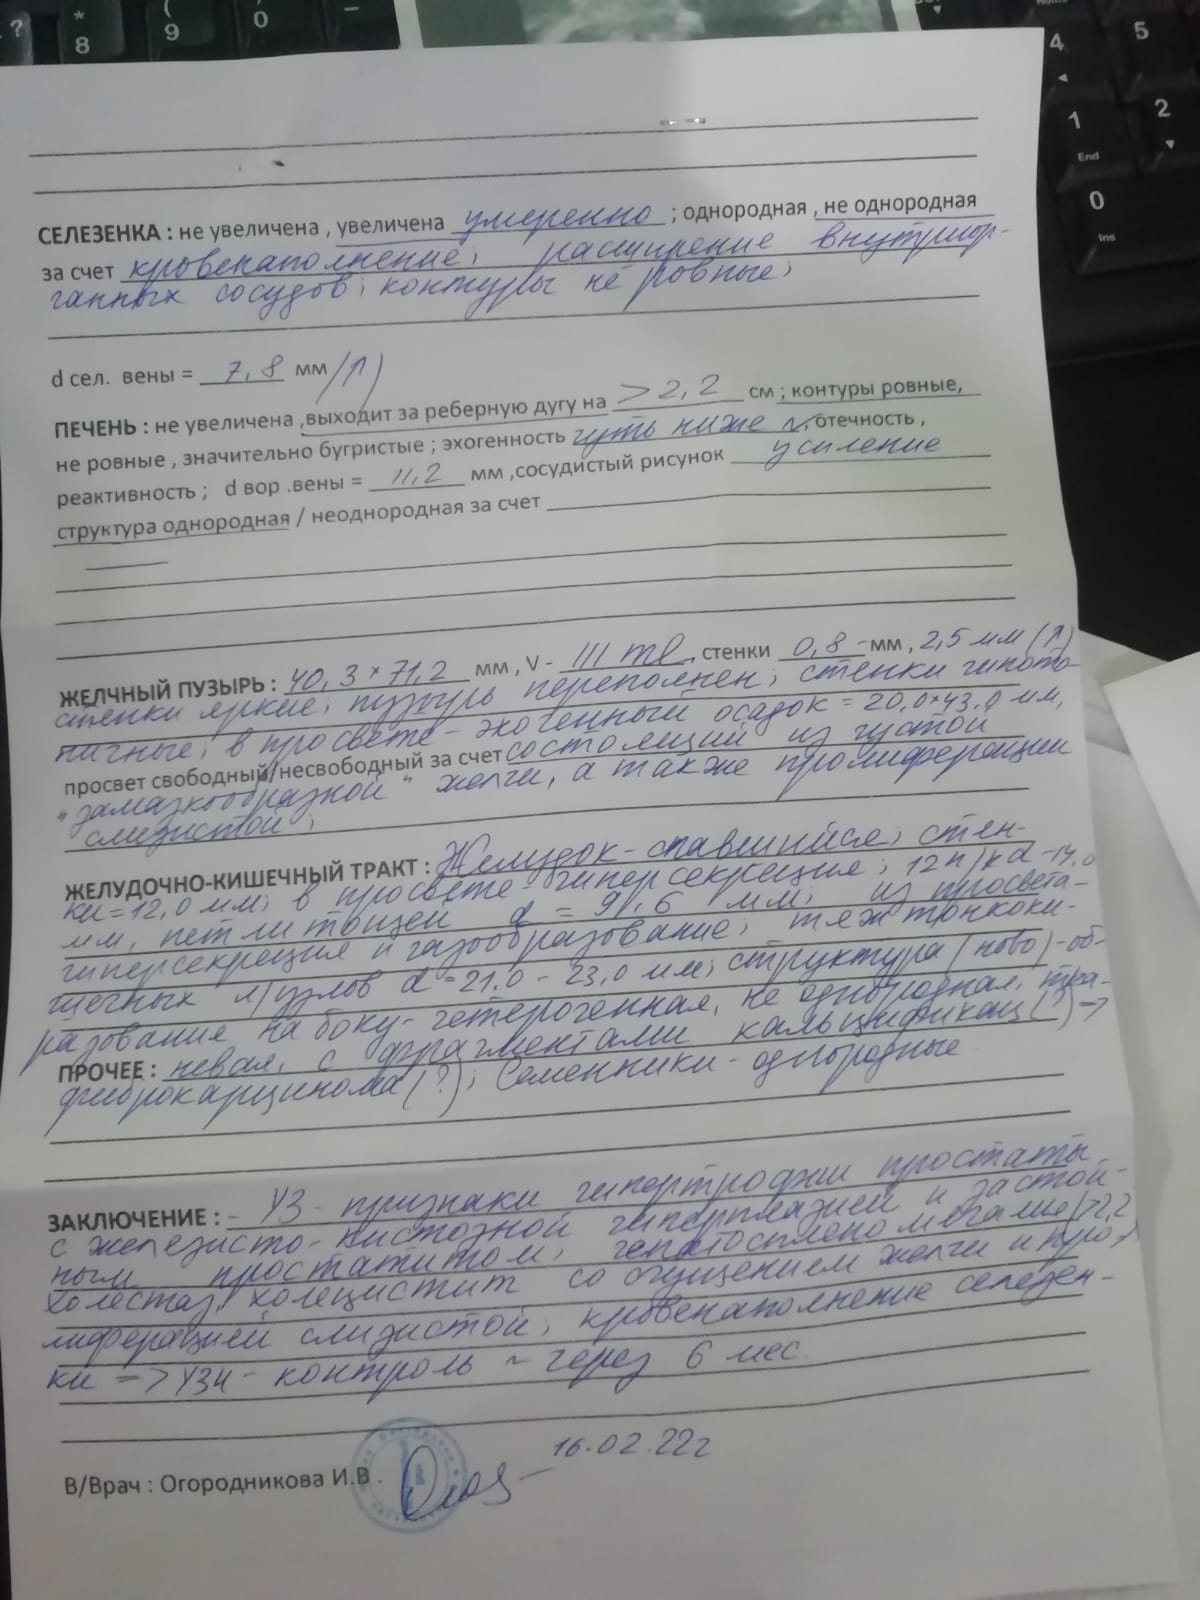 СЕЛЕЗЕНКА : не увеличена , увеличена умеренно ; однородная , не однородная
за счет кровенаполнение; расширение внутриор-
ганных сосудов; контуры не ровные;
d сел. вены = 7,8 мм (↑)
ПЕЧЕНЬ : не увеличена ,выходит за реберную дугу на >2,2 см ; контуры ровные,
не ровные , значительно бугристые ; эхогенность чуть ниже N, отечность ,
реактивность ; d вор .вены = 11,2 мм ,сосудистый рисунок усиление
структура однородная / неоднородная за счет
ЖЕЛЧНЫЙ ПУЗЫРЬ : 40,3×71,2 мм , V - 111 ml , стенки 0,8 -мм , 2,5 мм (↑)
стенки яркие; пузырь переполнен; стенки гипото-
ничные; в просвете - эхогенный осадок = 20,0×43,0 мм,
просвет свободный/несвободный за счет состоящий из густой
"замазкообразной" желчи, а также пролиферации
слизистой;
ЖЕЛУДОЧНО-КИШЕЧНЫЙ ТРАКТ : Желудок - спавшийся; стен-
ки = 12,0 мм; в просвете гиперсекреция; 12п/к d - 14,0
мм, петли тощей d = 9,6 мм; из просвета -
гиперсекреция и газообразование; тяж тонкоки-
шечных л/узлов d = 21,0 - 23,0 мм; структура (ново)-об-
разование на боку - гетерогенная, не однородная, тра-
ПРОЧЕЕ : невая, с фрагментами кальцификац (?) =>
фиброкарцинома (?); Семенники - однородные
ЗАКЛЮЧЕНИЕ : - УЗ - признаки гипертрофии простаты
с железисто - кистозной гиперплазией и застой-
ным простатитом; гепатоспленомегалие (>2,2
холестаз, холецистит со сгущением желчи и про-
лиферацией слизистой; кровенаполнение селезен-
ки => УЗИ - контроль ~ через 6 мес.
В/Врач : Огородникова И.В .
16.02.22г